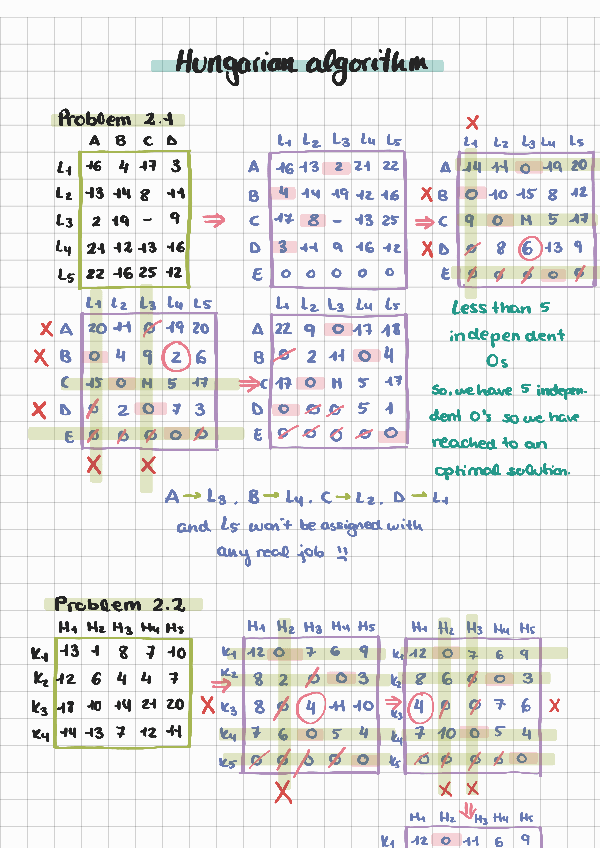 Hungarian algorithm
Problem 2.1
A B C D
L1 16 4 17 3
L2 13 14 8 11
L3 2 19 - 9
L4 21 12 13 16
L5 22 16 25 12
⇒
L1 L2 L3 L4 L5
A 16 13 2 21 22
B 4 14 19 12 16
C 17 8 - 13 25
D 3 11 9 16 12
E 0 0 0 0 0
X
L1 L2 L3 L4 L5
A 14 11 0 19 20
X B 0 10 15 8 12
⇒ C 9 0 M 5 17
X D 0 8 6 13 9
E 0 0 0 0 0
L1 L2 L3 L4 L5
X A 20 11 0 19 20
X B 0 4 9 2 6
C 15 0 M 5 17
X D 0 2 0 7 3
E 0 0 0 0 0
X X
L1 L2 L3 L4 L5
A 22 9 0 17 18
B 0 2 11 0 4
⇒ C 17 0 M 5 17
D 0 0 0 5 1
E 0 0 0 0 0
Less than 5
independent
0s
So, we have 5 indepen-
dent 0's so we have
reached to an
optimal solution.
A → L3, B → L4, C → L2, D → L1
and L5 won't be assigned with
any real job !!
Problem 2.2
H1 H2 H3 H4 H5
K1 13 1 8 7 10
K2 12 6 4 4 7
K3 18 10 14 21 20
K4 14 13 7 12 11
H1 H2 H3 H4 H5
K1 12 0 7 6 9
⇒ K2 8 2 0 0 3
X K3 8 0 4 11 10
K4 7 6 0 5 4
K5 0 0 0 0 0
X
H1 H2 H3 H4 H5
K1 12 0 7 6 9
K2 8 6 0 0 3
⇒ K3 4 0 0 7 6 X
K4 7 10 0 5 4
K5 0 0 0 0 0
X X
⇒
H1 H2 H3 H4 H5
K1 12 0 11 6 9